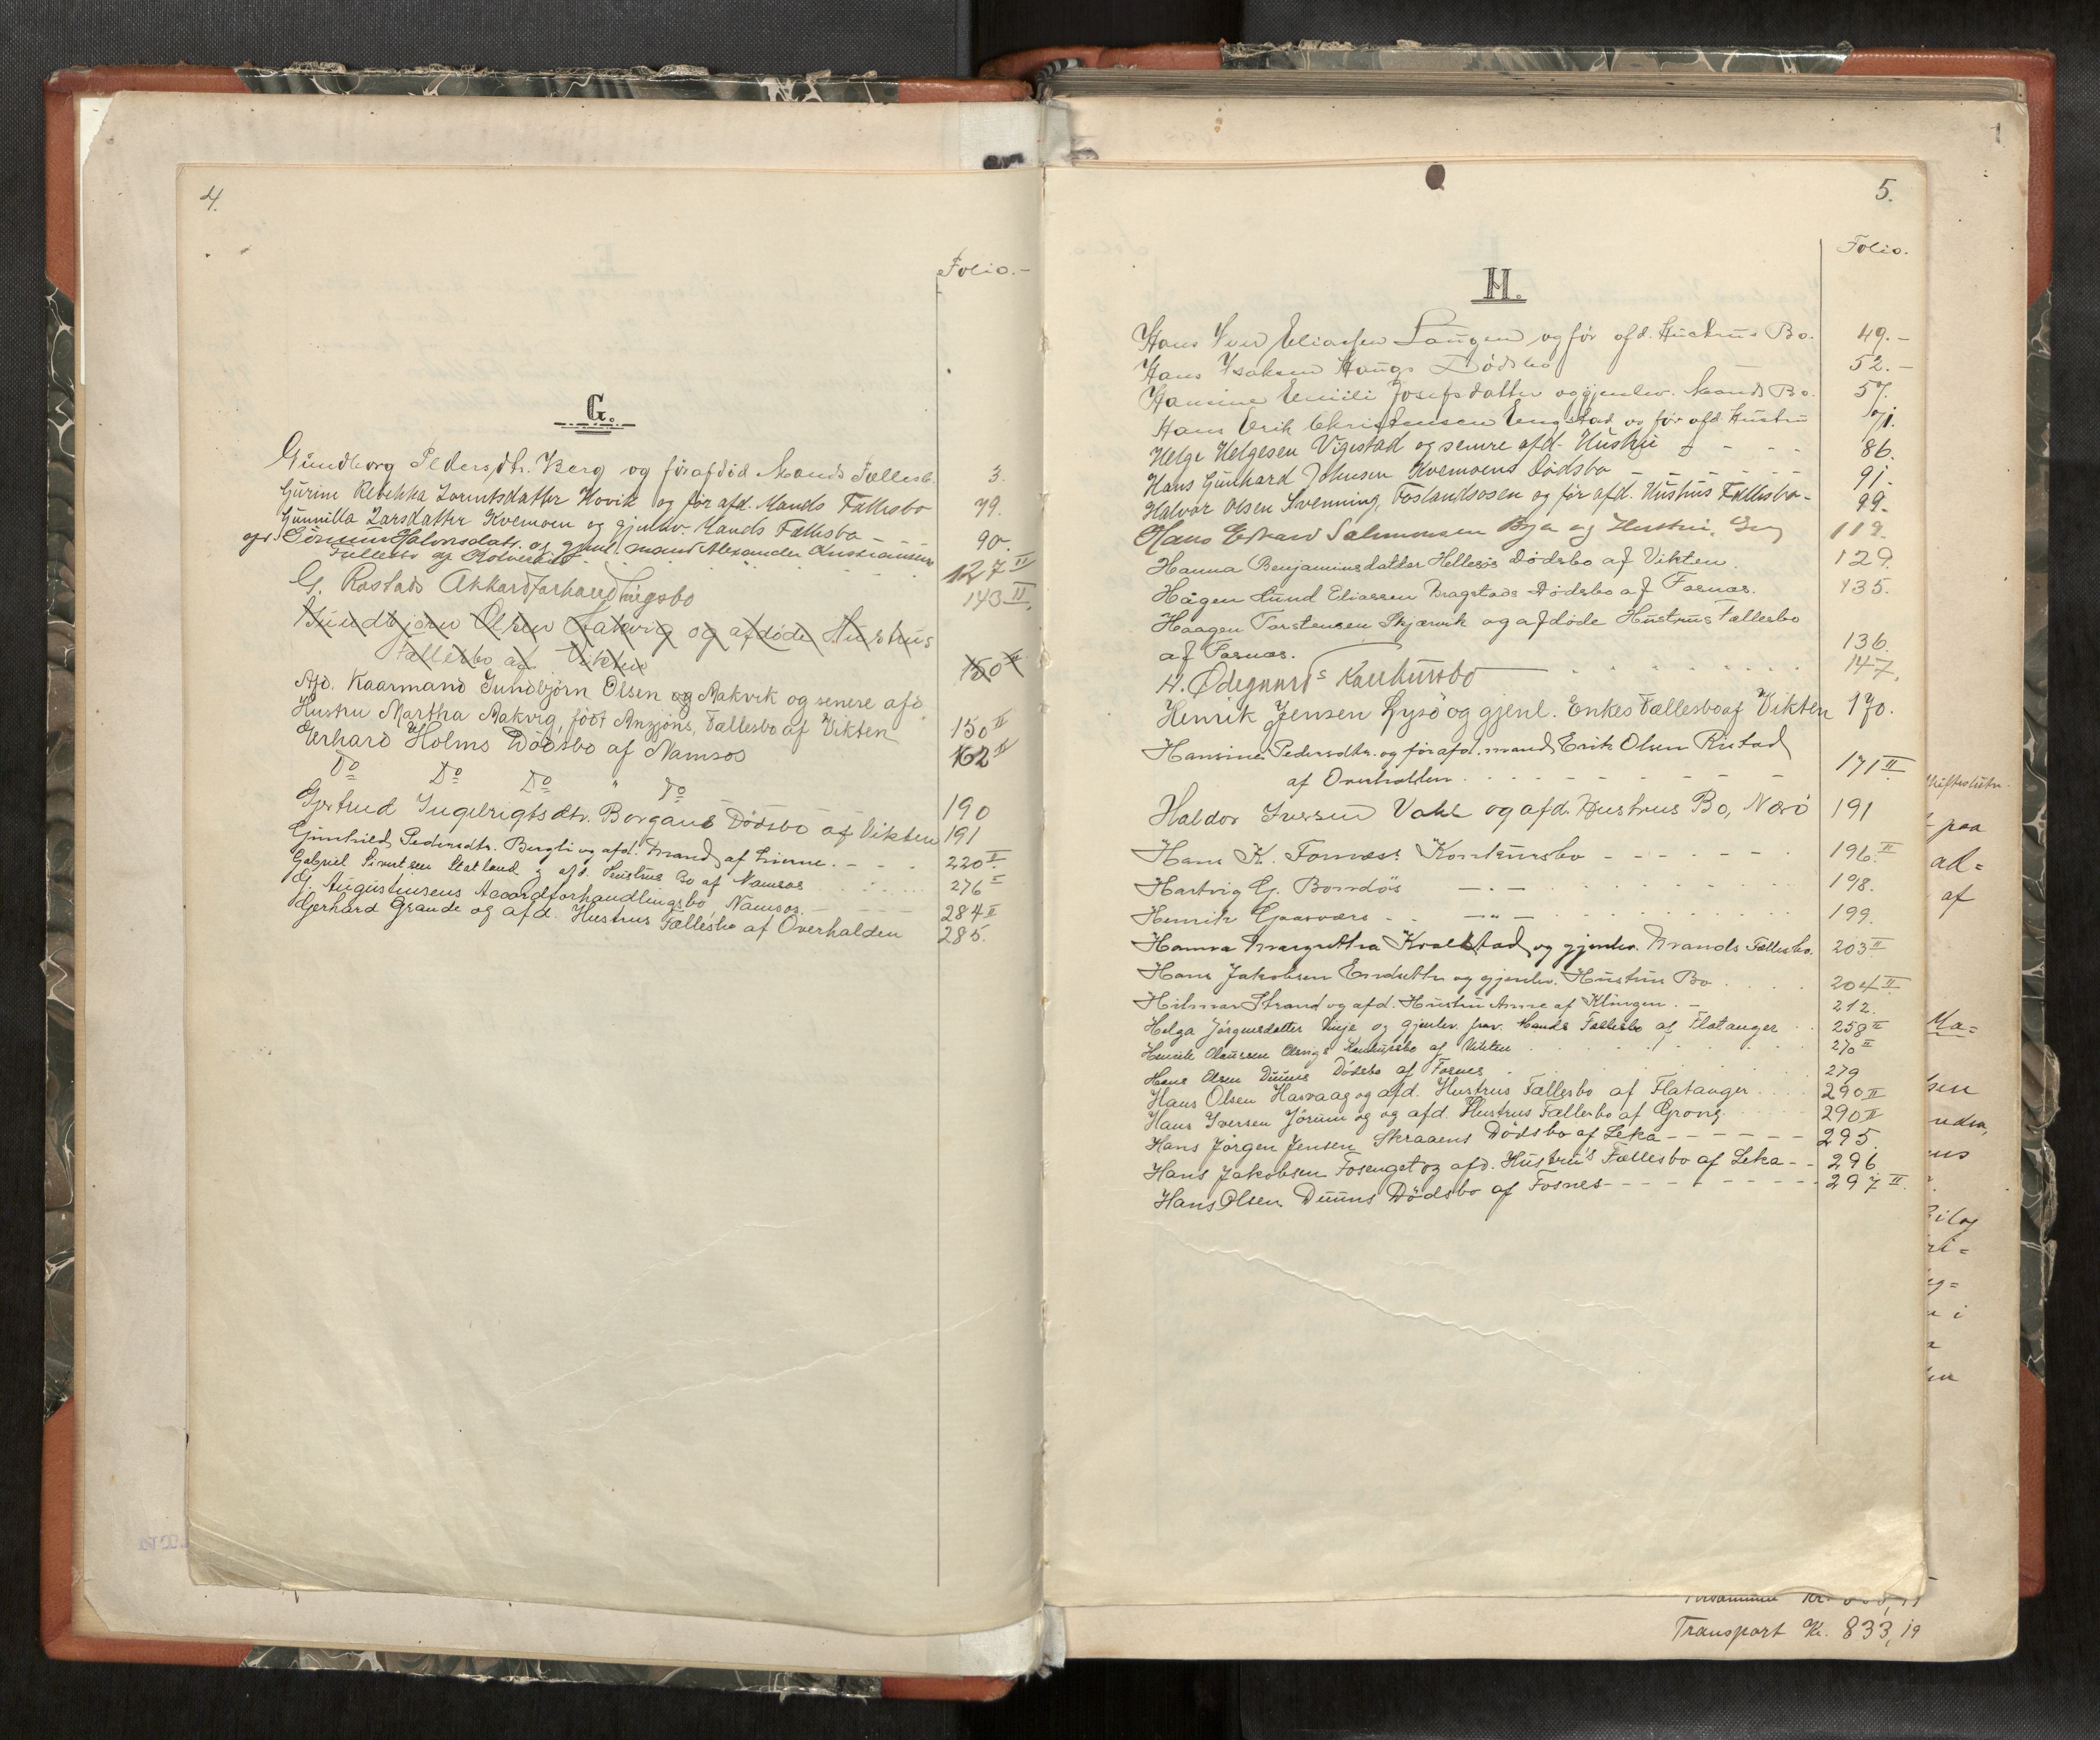 4.
Folio.-
G.
Gündborg Pedersdtr. Berg og førafdød Mands Fællesb. 3.
Gurine Rebekka Lorentsdatter Hovik og før afd. Mands Fællesbo 79.
Gunnilla Larsdatter Kvemoen og gjenlev. Mands Fællesbo - - - 90.
Halvorsdatr. og gjenl. mand Alexander Kristiansens
Fællesbo af Kolvereid 127 II
G. Rostads Akkordforhandlingsbo 143 II.
Gundbjørn Olsen Aakvig og afdøde Hustrus
Fællesbo af Vikten 150 II
Afd. Kaarmand Gundbjørn Olsen og Aakvik og senere afd.
Hustru Martha Aakvig, født Anzjøns, Fællesbo af Vikten 150 II
Gerhard Holms Dødsbo af Namsos 162 II
Do Do Do " Do 190
Gjertrud Ingelrigtsdtr. Borgans Dødsbo af Vikten 191
Gunhild Pedersdtr. Bergli og afd. Mand af Lierne. - - - 220 II
Gabriel Sivertsen Statland og afd. Hustrus Bo af Namsos 276 II
J. Augustinsens Accordforhandlingsbo Namsos. 284 II
Gerhard Grande og afd. Hustrus Fællesbo af Overhalden 285.
5.
Folio.
H.
Hans Iver Eliassen Laugen og før afd. Hustrus Bo. 49.-
Hans Isaksen Haugs Dødsbo 52.-
Hansine Emili Josefsdatter og gjenlev. Mands Bo. 57.
Hans Erik Christensen Engstad og før afd. Hustru 71.
Helge Helgesen Vigestad og senere afd. Hustru - - - 86.
Hans Gunhard Johnsen Kvemoens Dødsbo - - - - - - 91.
Halvor Olsen Svenning, Foslandsosen og før afd. Hustrus Fællesbo - 99.
Hans Edvard Salomonsen Bya og Hustru, 112.
Hanna Benjaminsdatter Hellesøs Dødsbo af Vikten. 129.
Hågen Lund Eliassen Dragstads Dødsbo af Fosnæs. 135.
Haagen Torstensen Skjærvik og afdøde Hustrus Fællesbo
af Fosnæs. 136.
H. Ødegaards Konkursbo 147.
Henrik Jensen Lysø og gjenl. Enkes Fællesbo af Vikten 170.
Hansine Pedersdtr. og før afd. mand Erik Olsen Ristad
af Overhalden 171 II.
Haldor Iversen Vahl og afd. Hustrus Bo, Nærø 191
Hans K. Fornæss Konkursbo - - - - - - 196 II
Hartvig G. Borndøs -"- 198.
Henrik Gaasværs - -"- 199.
Hanna Margretha Kvalstad og gjenlev. Mands Fællesbo. 203 II
Hans Jakobsen Endseth og gjenlev. Hustrus Bo 204 II.
Hilmar Strand og afd. Hustru Anne af Klingen. - 212.
Helga Jørgensdatter Vinje og gjenlev. frav. Mands Fællesbo af Flatanger 258 II
Henrik Olaussen Konkursbo af Vikten 270 II
Hans Olsen Duuns Dødsbo af Fosnes 279
Hans Olsen Hasvaag og afd. Hustrus Fællesbo af Flatanger 290 II
Hans Iversen Jørum og og afd. Hustrus Fællesbo af Grong. 290 II
Hans Jørgen Jensen Skraaens Dødsbo af Leka - - - - - - 295.
Hans Jakobsen Fosenget og afd. Hustru's Fællesbo af Leka - - 296
Hans Olsen Duuns Dødsbo af Fosnes - - - - - - - 297 II.
1
paa
ad=
af
Ma=
Transport Kr. 833,19